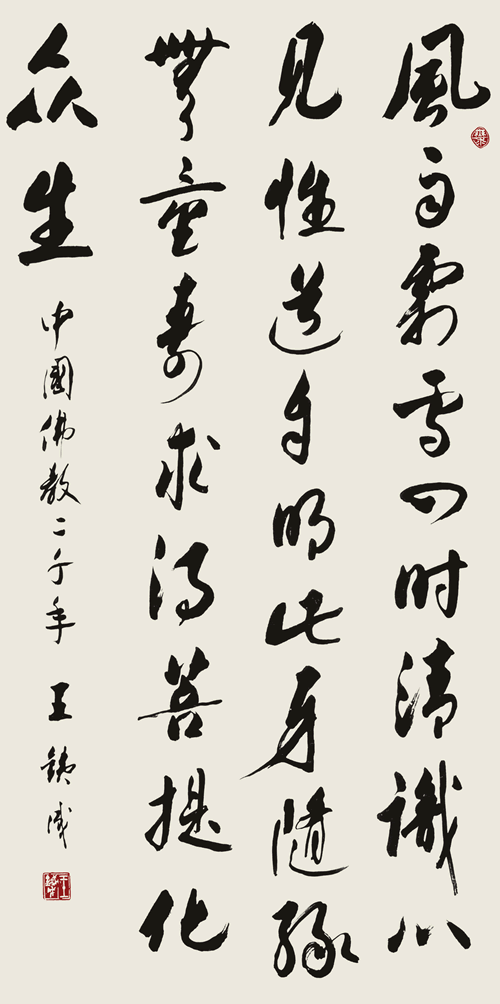 風雨霜雪四时清識心
見性道自明此身隨緣
無量壽求得菩提化
众生
中國佛教二千年 王鐵成